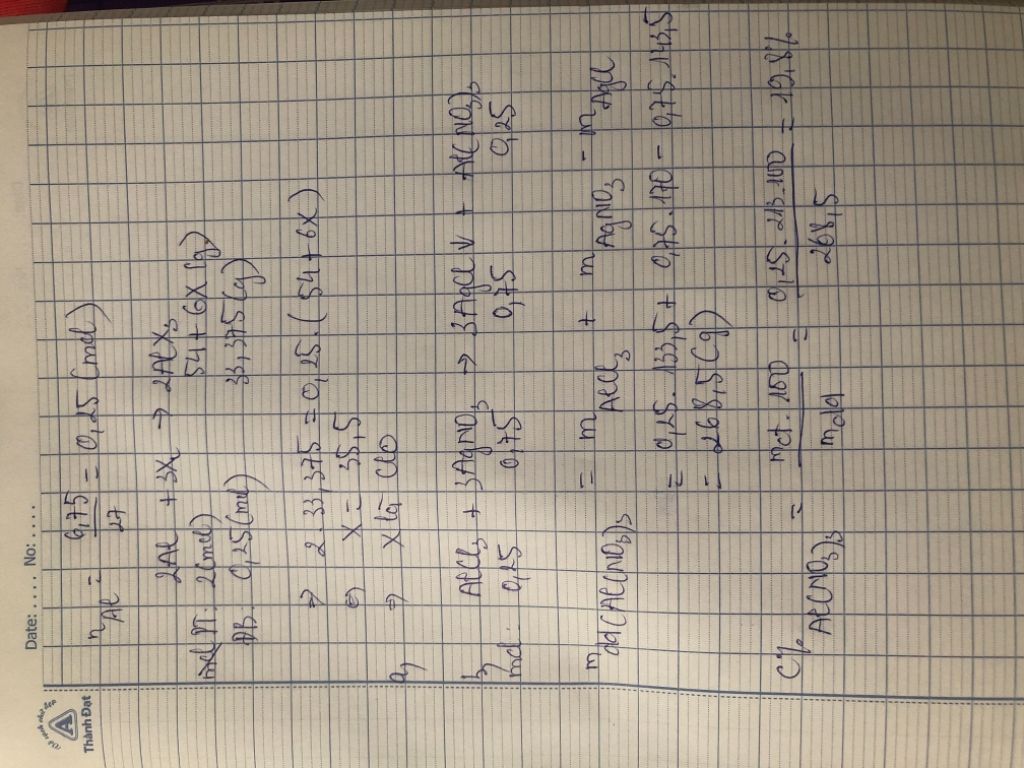 Thành Đạt
Date: .... No: ....
n Al = 6,75/27 = 0,25 (mol)
2Al + 3X → 2AlX₃
mol PT: 2(mol) 54 + 6X (g)
ĐB: 0,25(mol) 33,375 (g)
⇒ 2.33,375 = 0,25.(54 + 6X)
⇔ X = 35,5
a, ⇒ X là Clo
b, AlCl₃ + 3AgNO₃ → 3AgCl↓ + Al(NO₃)₃
mol: 0,25 0,75 0,75 0,25
m dd(Al(NO₃)₃ = m AlCl₃ + m AgNO₃ - m AgCl
= 0,25.133,5 + 0,75.170 - 0,75.143,5
= 268,5 (g)
C% Al(NO₃)₃ = mct.100/mdd = 0,25.213.100/268,5 = 19,8%